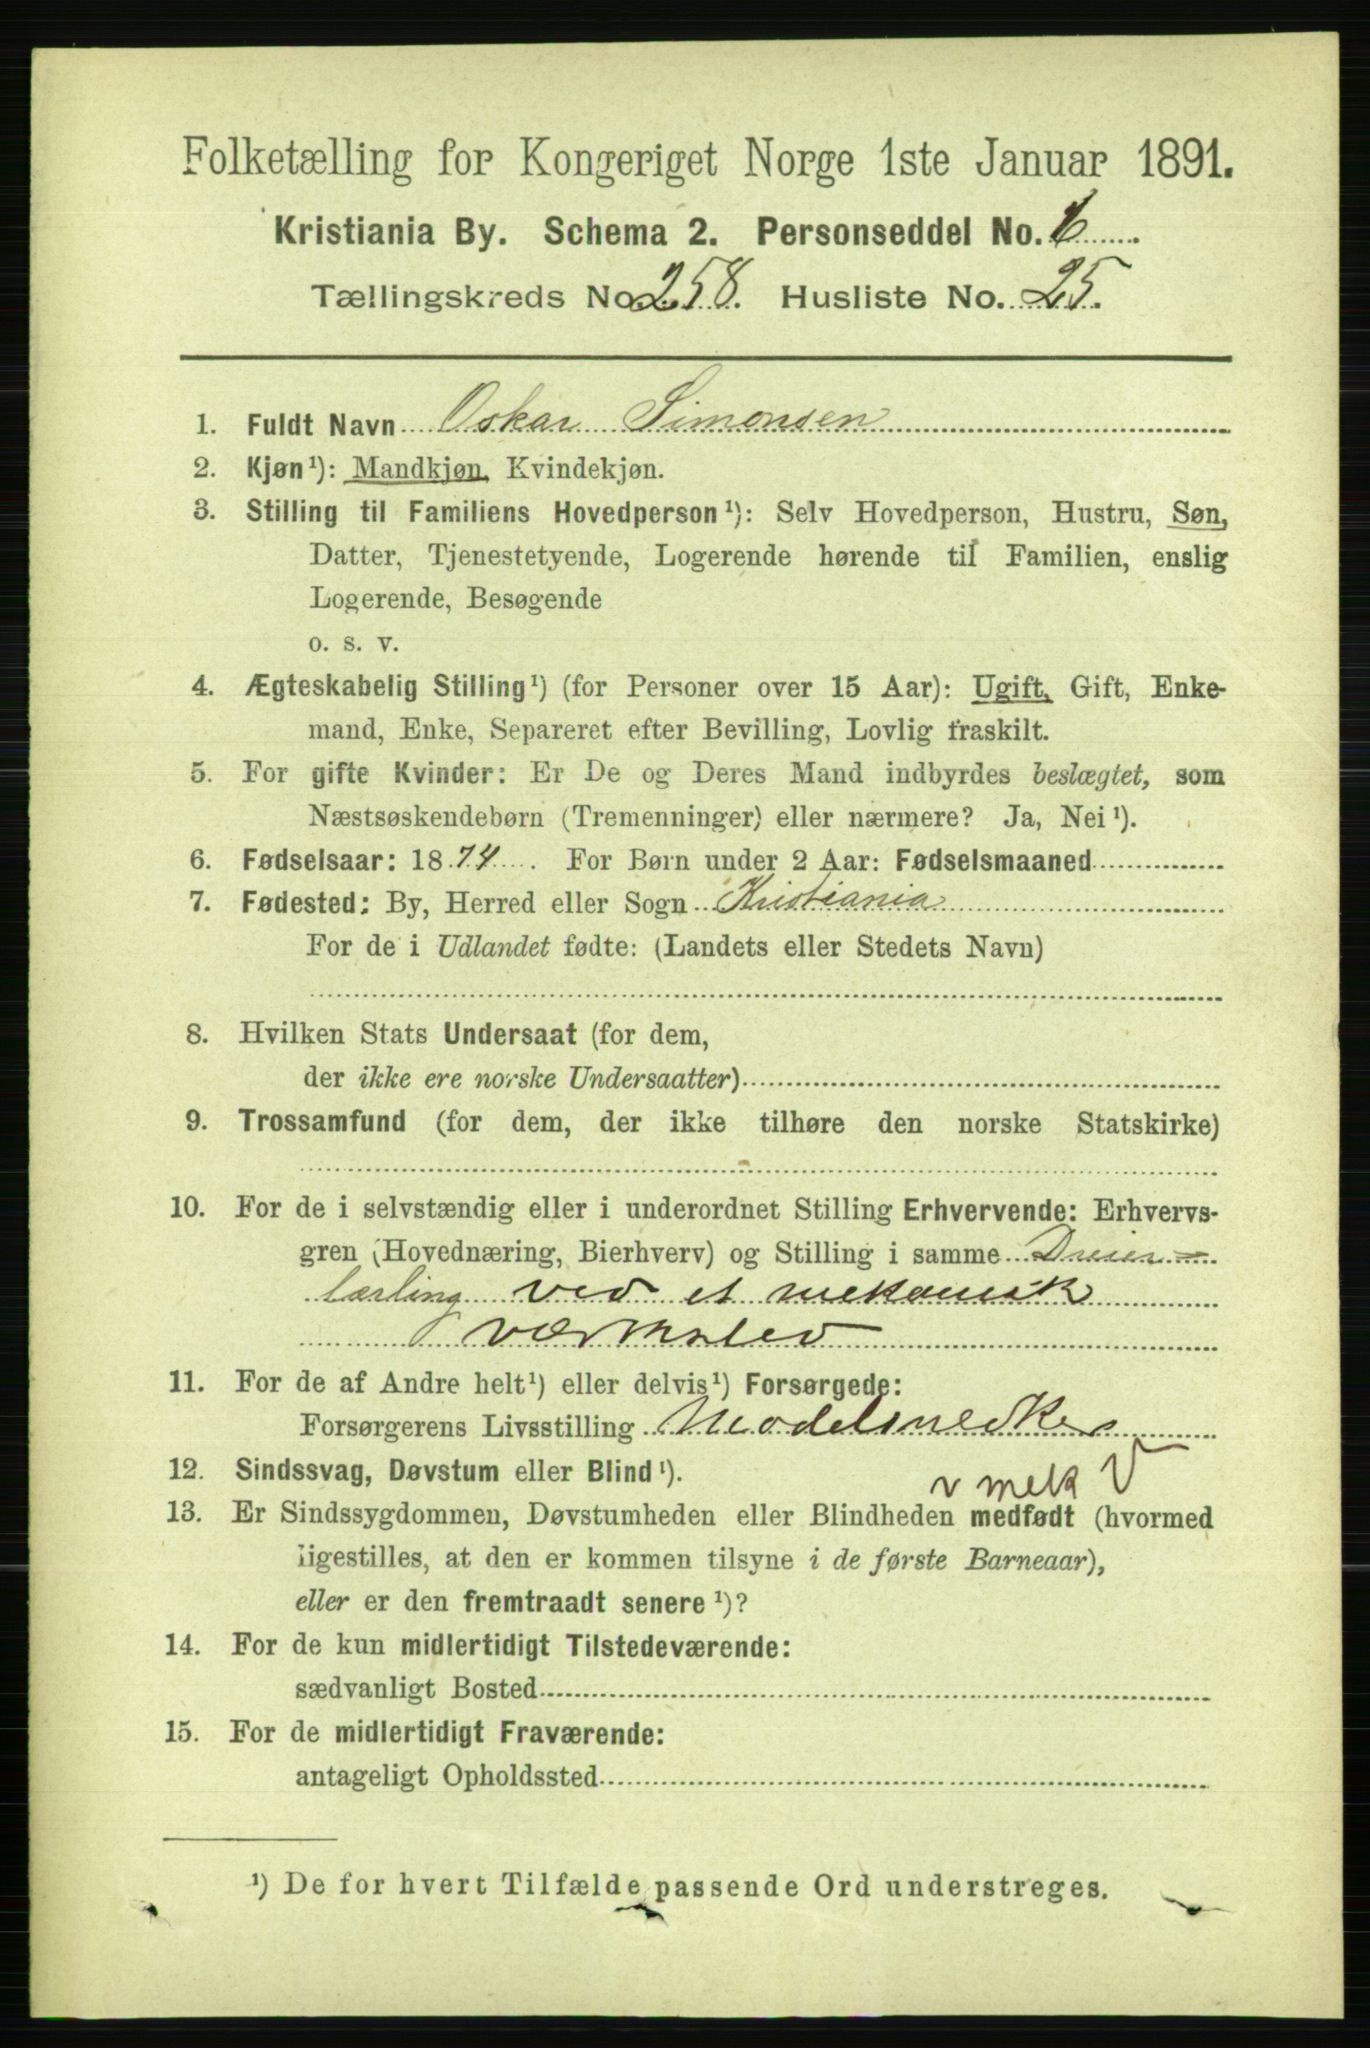 Folketælling for Kongeriget Norge 1ste Januar 1891.
Kristiania By. Schema 2. Personseddel No. 6
Tællingskreds No. 258. Husliste No. 25.
1. Fuldt Navn Oskar Simonsen
2. Kjøn¹): Mandkjøn, Kvindekjøn.
3. Stilling til Familiens Hovedperson¹): Selv Hovedperson, Hustru, Søn,
Datter, Tjenestetyende, Logerende hørende til Familien, enslig
Logerende, Besøgende
o. s. v.
4. Ægteskabelig Stilling¹) (for Personer over 15 Aar): Ugift, Gift, Enke-
mand, Enke, Separeret efter Bevilling, Lovlig fraskilt.
5. For gifte Kvinder: Er De og Deres Mand indbyrdes beslægtet, som
Næstsøskendebørn (Tremenninger) eller nærmere? Ja, Nei¹).
6. Fødselsaar: 1874. For Børn under 2 Aar: Fødselsmaaned
7. Fødested: By, Herred eller Sogn Kristiania
For de i Udlandet fødte: (Landets eller Stedets Navn)
8. Hvilken Stats Undersaat (for dem,
der ikke ere norske Undersaatter)
9. Trossamfund (for dem, der ikke tilhøre den norske Statskirke)
10. For de i selvstændig eller i underordnet Stilling Erhvervende: Erhvervs-
gren (Hovednæring, Bierhverv) og Stilling i samme Dreier-
lærling ved et mekanisk
værksted
11. For de af Andre helt¹) eller delvis¹) Forsørgede:
Forsørgerens Livsstilling Modelsnedker
v mek V
12. Sindssvag, Døvstum eller Blind¹).
13. Er Sindssygdommen, Døvstumheden eller Blindheden medfødt (hvormed
ligestilles, at den er kommen tilsyne i de første Barneaar),
eller er den fremtraadt senere¹)?
14. For de kun midlertidigt Tilstedeværende:
sædvanligt Bosted
15. For de midlertidigt Fraværende:
antageligt Opholdssted
¹) De for hvert Tilfælde passende Ord understreges.